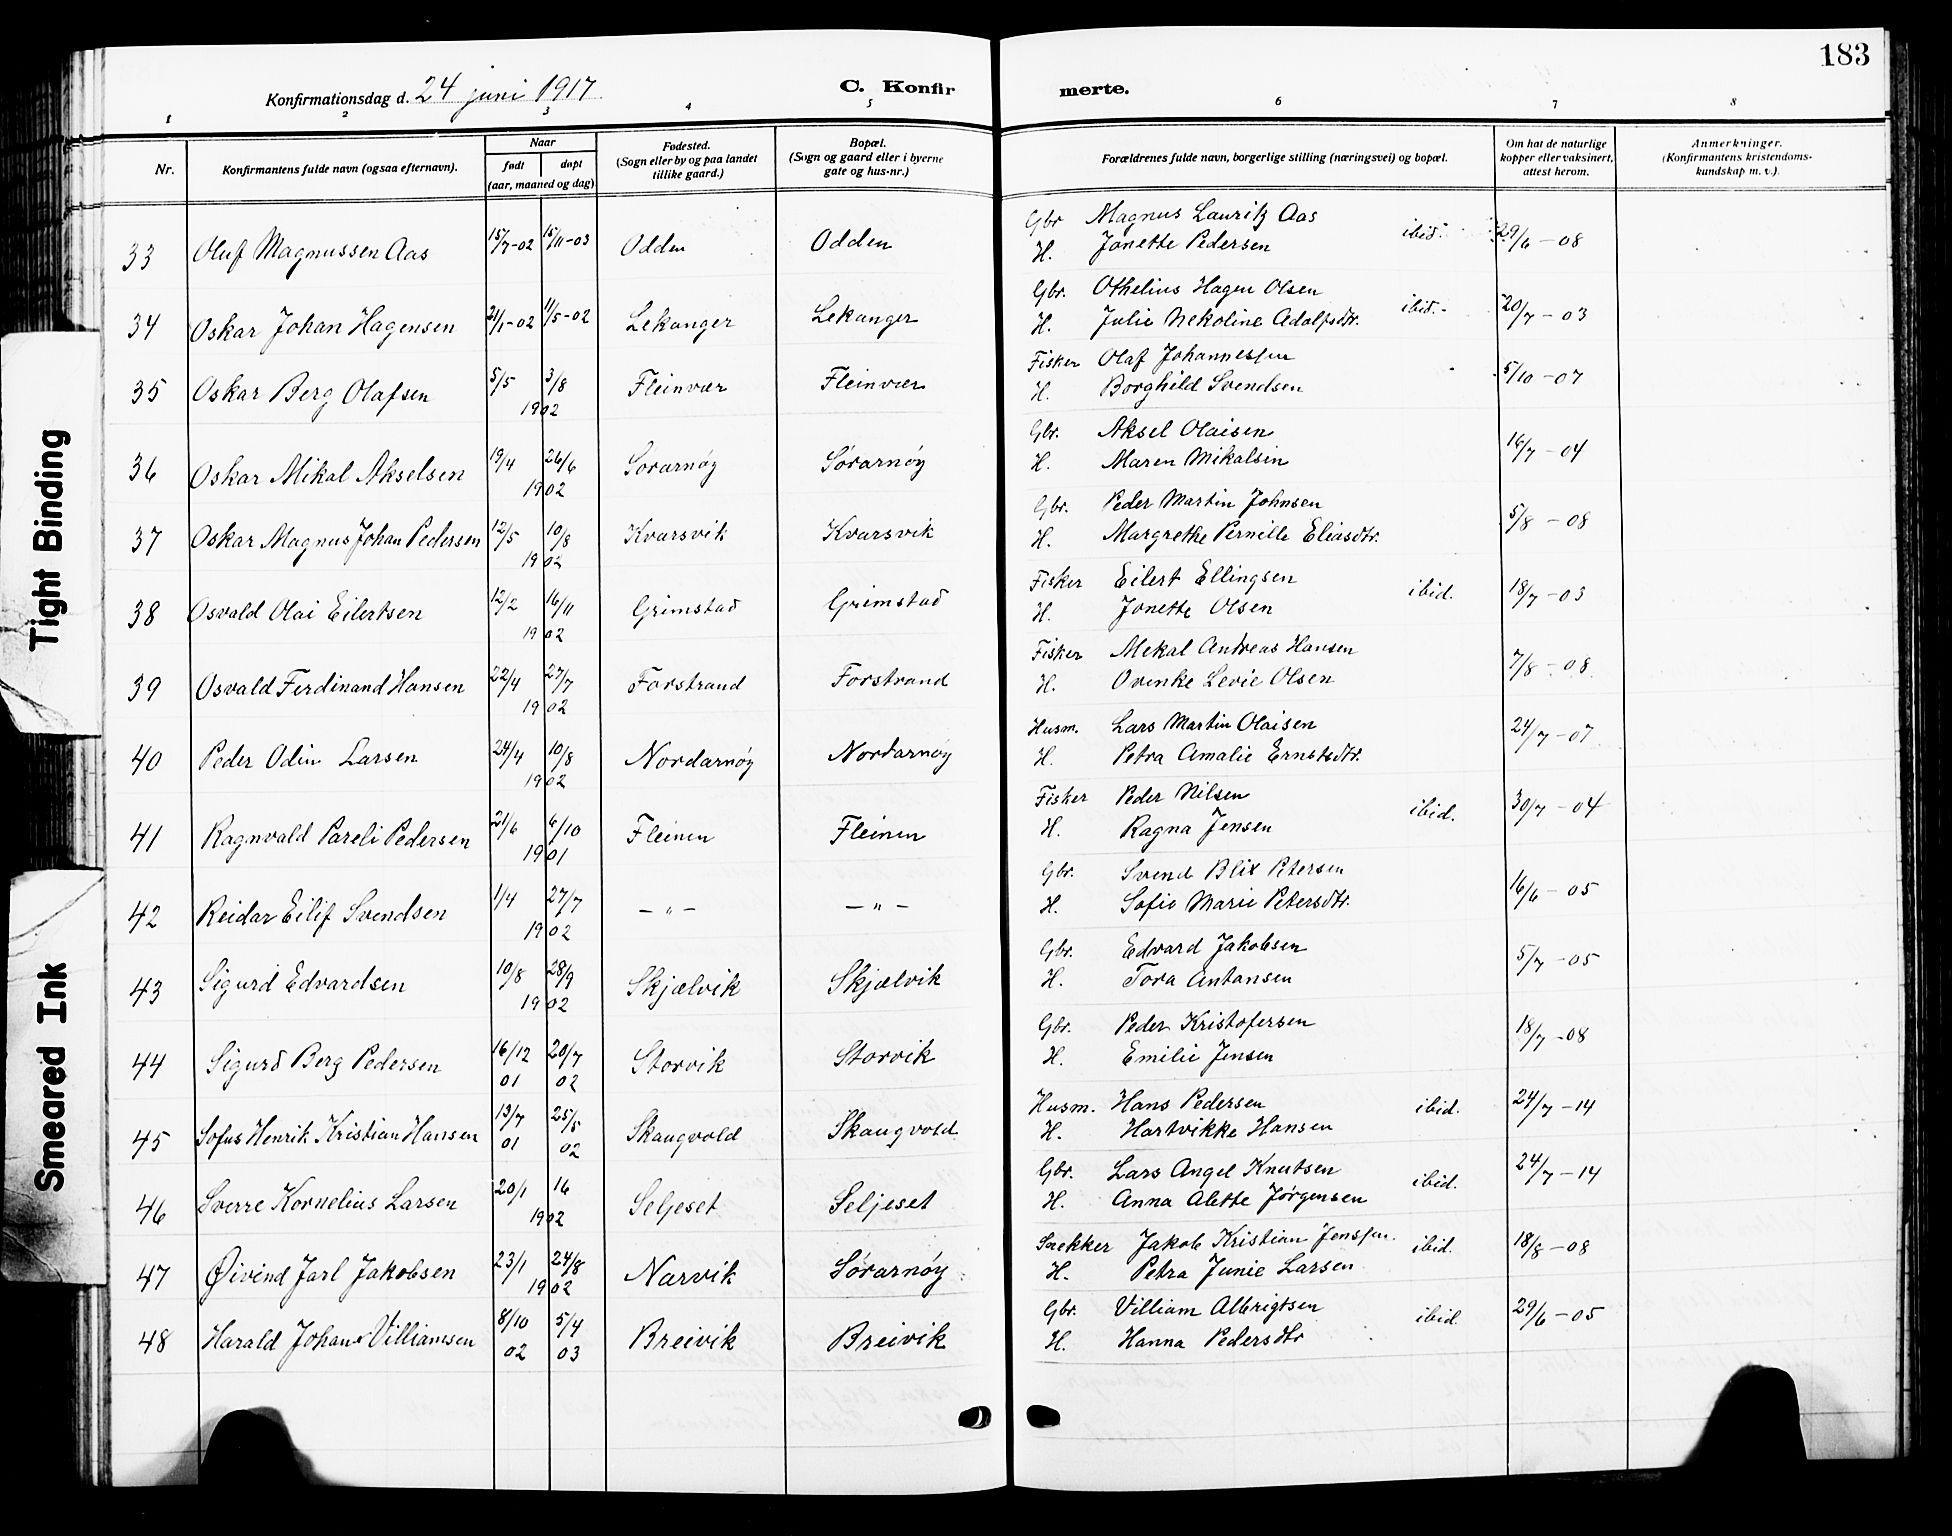 183
Konfirmationsdag d. 24 juni 1917
C. Konfirmerte.
1 2 3 4 5 6 7 8
Nr. | Konfirmantens fulde navn (ogsaa efternavn). | Naar født døpt (aar, maaned og dag) | Fødested. (Sogn eller by og paa landet tillike gaard.) | Bopæl. (Sogn og gaard eller i byerne gate og hus-nr.) | Forældrenes fulde navn, borgerlige stilling (næringsvei) og bopæl. | Om hat de naturlige kopper eller vaksinert, attest herom. | Anmerkninger. (Konfirmantens kristendoms-kundskap m. v.).
33 Oluf Magnussen Aas 15/7-02 15/11-03 Odden Odden Gbr Magnus Lauritz Aas ibid. 29/6-08
H. Jonette Pedersen
34 Oskar Johan Hagensen 21/1-02 11/5-02 Lekanger Lekanger Gbr. Othelius Hagen Olsen ibid. 20/7-03
H. Julie Nekoline Adolfsdtr.
35 Oskar Berg Olafsen 5/5 3/8 1902 Fleinvær Fleinvær Fisker Olaf Johannessen 5/10-07
H. Borghild Svendsen
36 Oskar Mikal Akselsen 19/4 26/6 1902 Sørarnøy Sørarnøy Gbr. Aksel Olaisen 16/7-04
H. Maren Mikalsen
37 Oskar Magnus Johan Pedersen 12/5 10/8 1902 Kvarsvik Kvarsvik Gbr. Peder Martin Johnsen 5/8-08
H. Margrethe Pernille Eliasdtr.
38 Osvald Olai Eilertsen 12/2 16/11 1902 Grimstad Grimstad Fisker Eilert Ellingsen ibid. 18/7-03
H. Jonette Olsen
39 Osvald Ferdinand Hansen 22/4 27/7 1902 Forstrand Forstrand Fisker Mekal Andreas Hansen 7/8-08
H. Ovenke Levie Olsen
40 Peder Odin Larsen 24/4 10/8 1902 Nordarnøy Nordarnøy Husm. Lars Martin Olaisen 24/7-07
H. Petra Amalie Ernstsdtr.
41 Ragnvald Pareli Pedersen 21/6 6/10 1901 Fleinen Fleinen Fisker Peder Nilsen ibid. 30/7-04
H. Ragna Jensen
42 Reidar Eilif Svendsen 1/4 27/7 1902 - " - - " - Gbr. Svend Blix Petersen 16/6-05
H. Sofie Marie Petersdtr.
43 Sigurd Edvardsen 10/8 28/9 1902 Skjælvik Skjælvik Gbr. Edvard Jakobsen 5/7-05
H. Tora Antonsen
44 Sigurd Berg Pedersen 16/12 01 20/7 02 Storvik Storvik Gbr. Peder Kristofersen 18/7-08
H. Emilie Jensen
45 Sofus Henrik Kristian Hansen 13/7 01 25/5 02 Skaugvold Skaugvold Husm. Hans Pedersen ibid. 24/7-14
H. Hartvikke Hansen
46 Sverre Kornelius Larsen 20/1 16 1902 Seljeset Seljeset Gbr. Lars Angel Knutsen ibid. 24/7-14
H. Anna Alette Jørgensen
47 Øivind Jarl Jakobsen 23/1 24/8 1902 Narvik Sørarnøy Snekker Jakob Kristian Jenssen ibid. 18/8-08
H. Petra Junie Larsen
48 Harald Johan Villiamsen 8/10 02 5/4 03 Breivik Breivik Gbr. Villiam Albrigtsen ibid. 29/6-05
H. Hanna Pedersdtr
Tight Binding
Smeared Ink